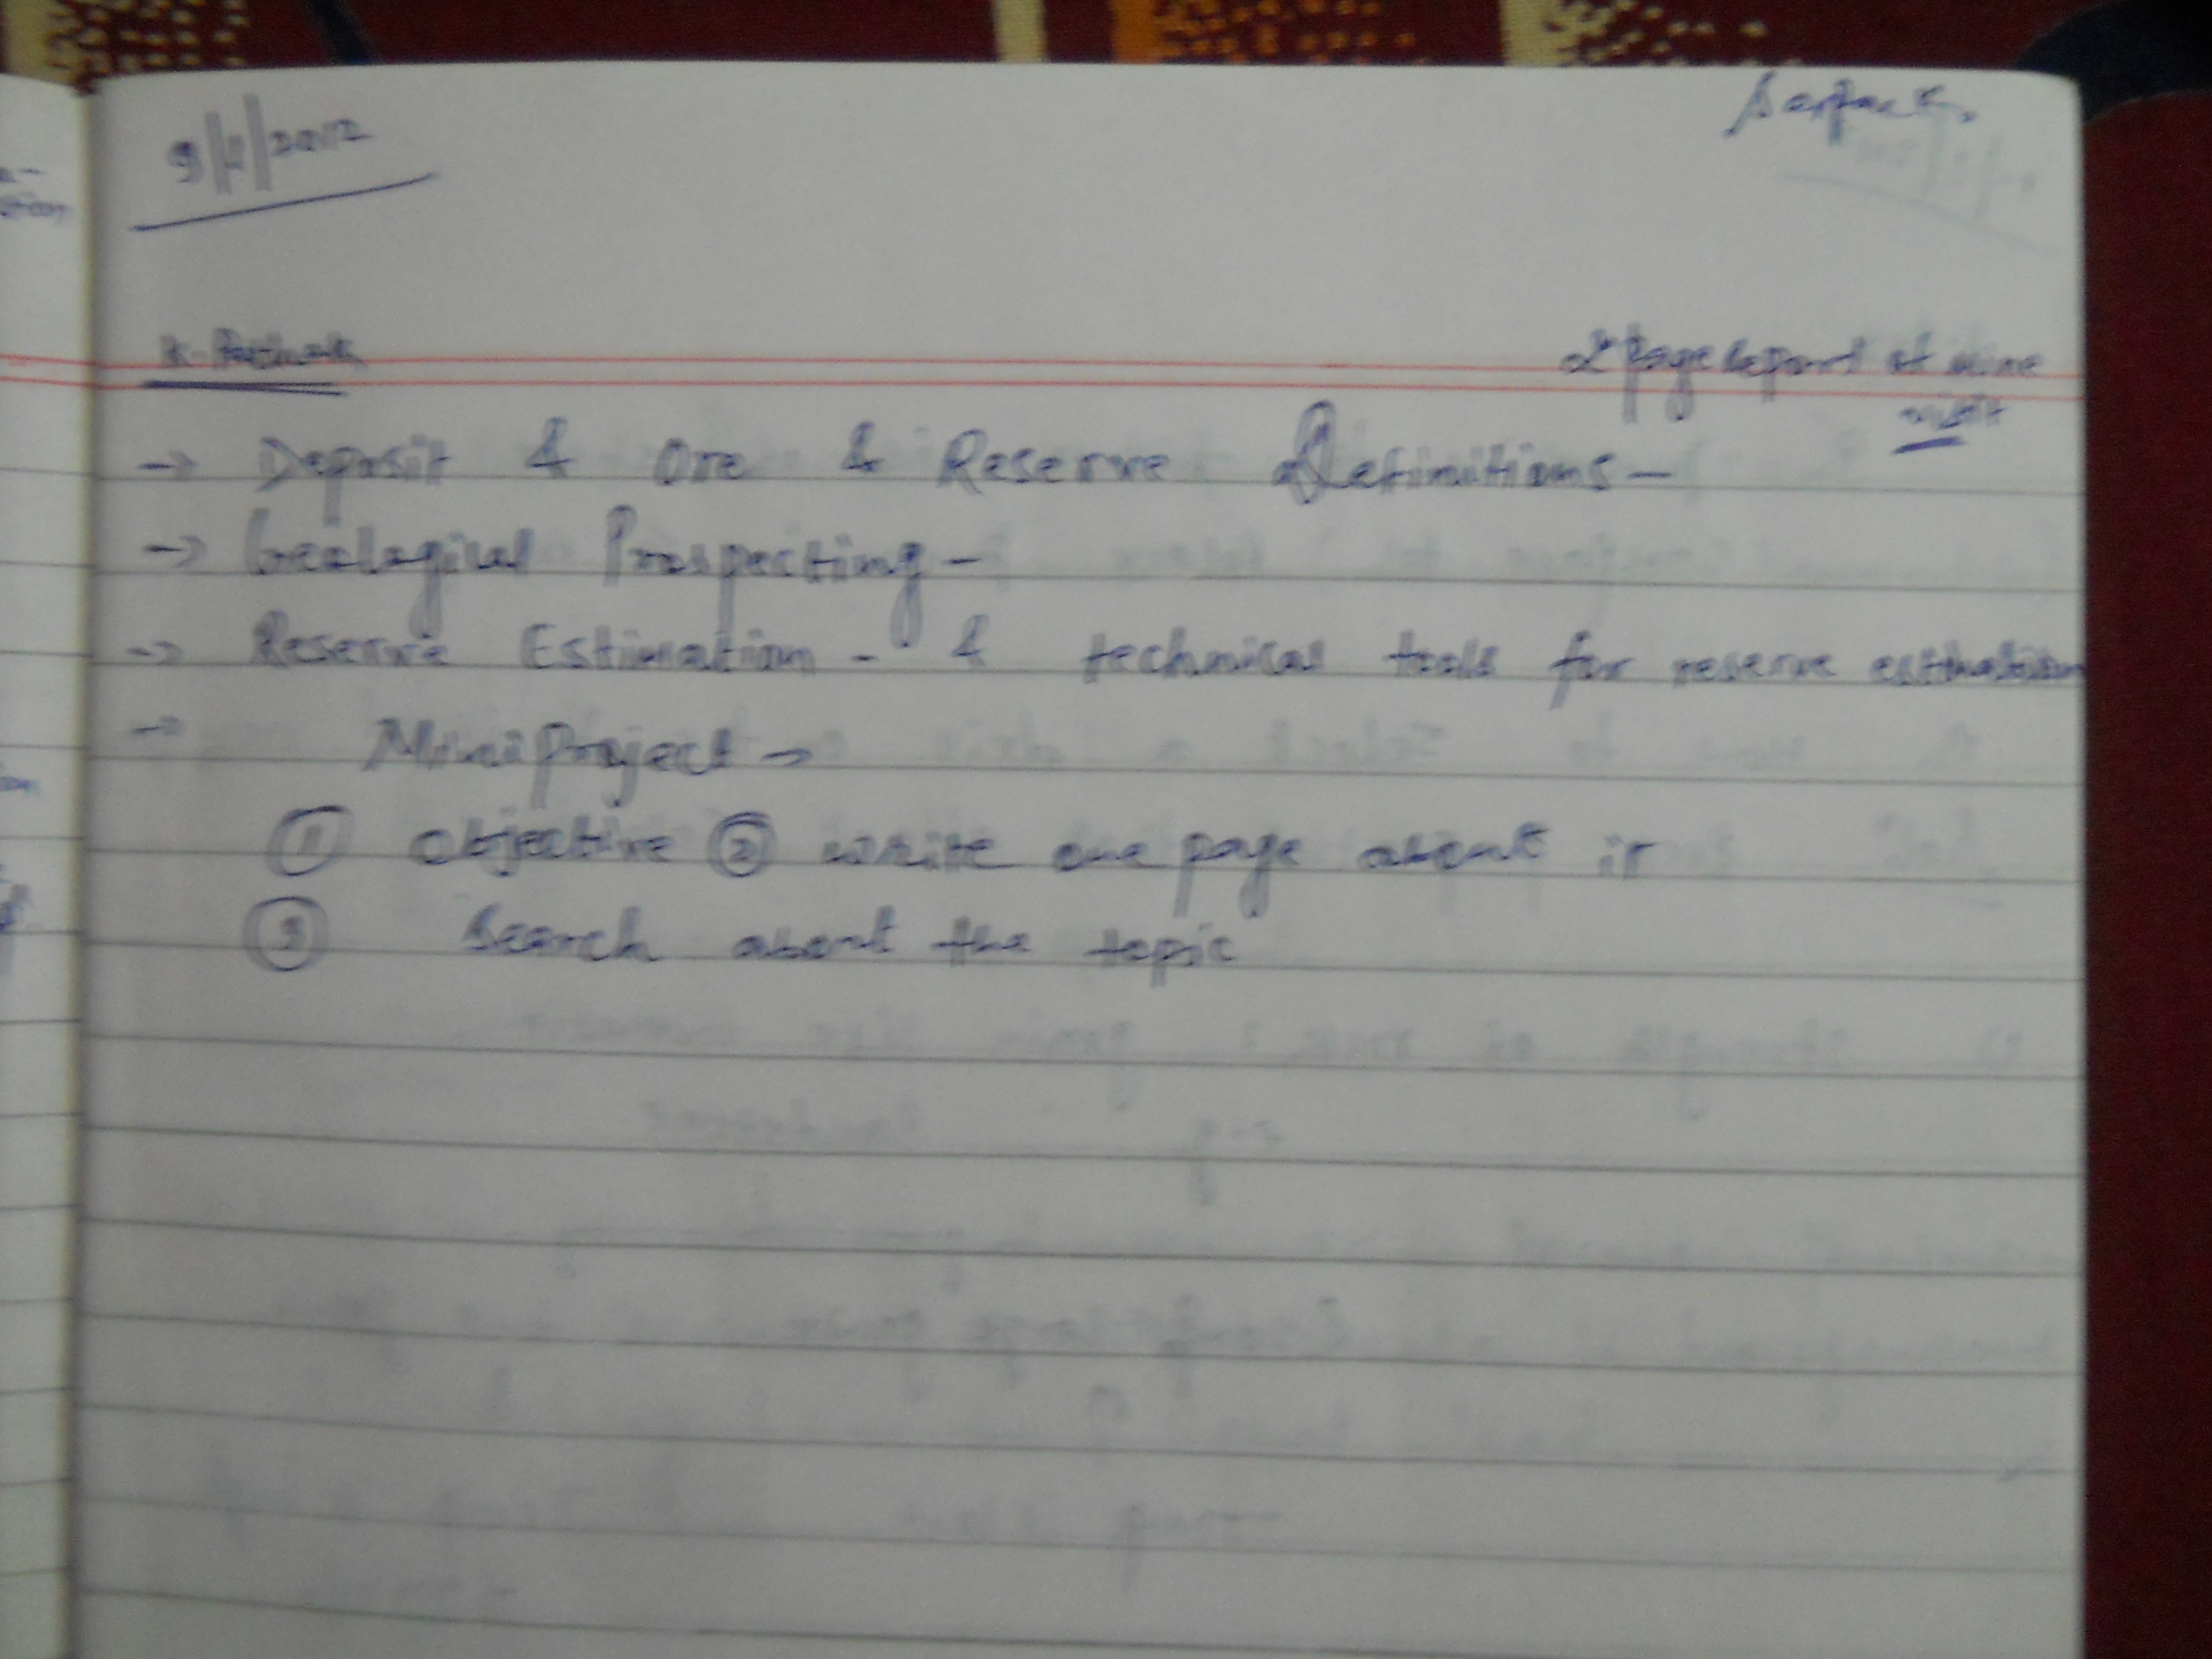 9/1/2012
K. Pathak
2 page report of mine
visit
→ Deposit & Ore & Reserve Definitions –
→ Geological Prospecting –
→ Reserve Estimation - & technical tools for reserve estimation
→ Mini Project →
① Objective ② write one page about it
③ Search about the topic